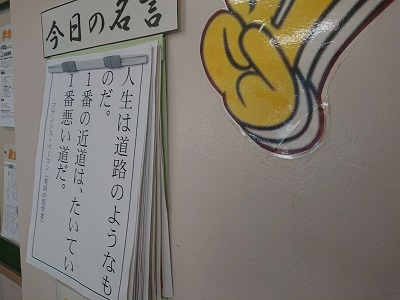 今日の名言
人生は道路のようなも
のだ。
1番の近道は、たいてい
1番悪い道だ。
フランシス・ベーコン(英国の哲学者)